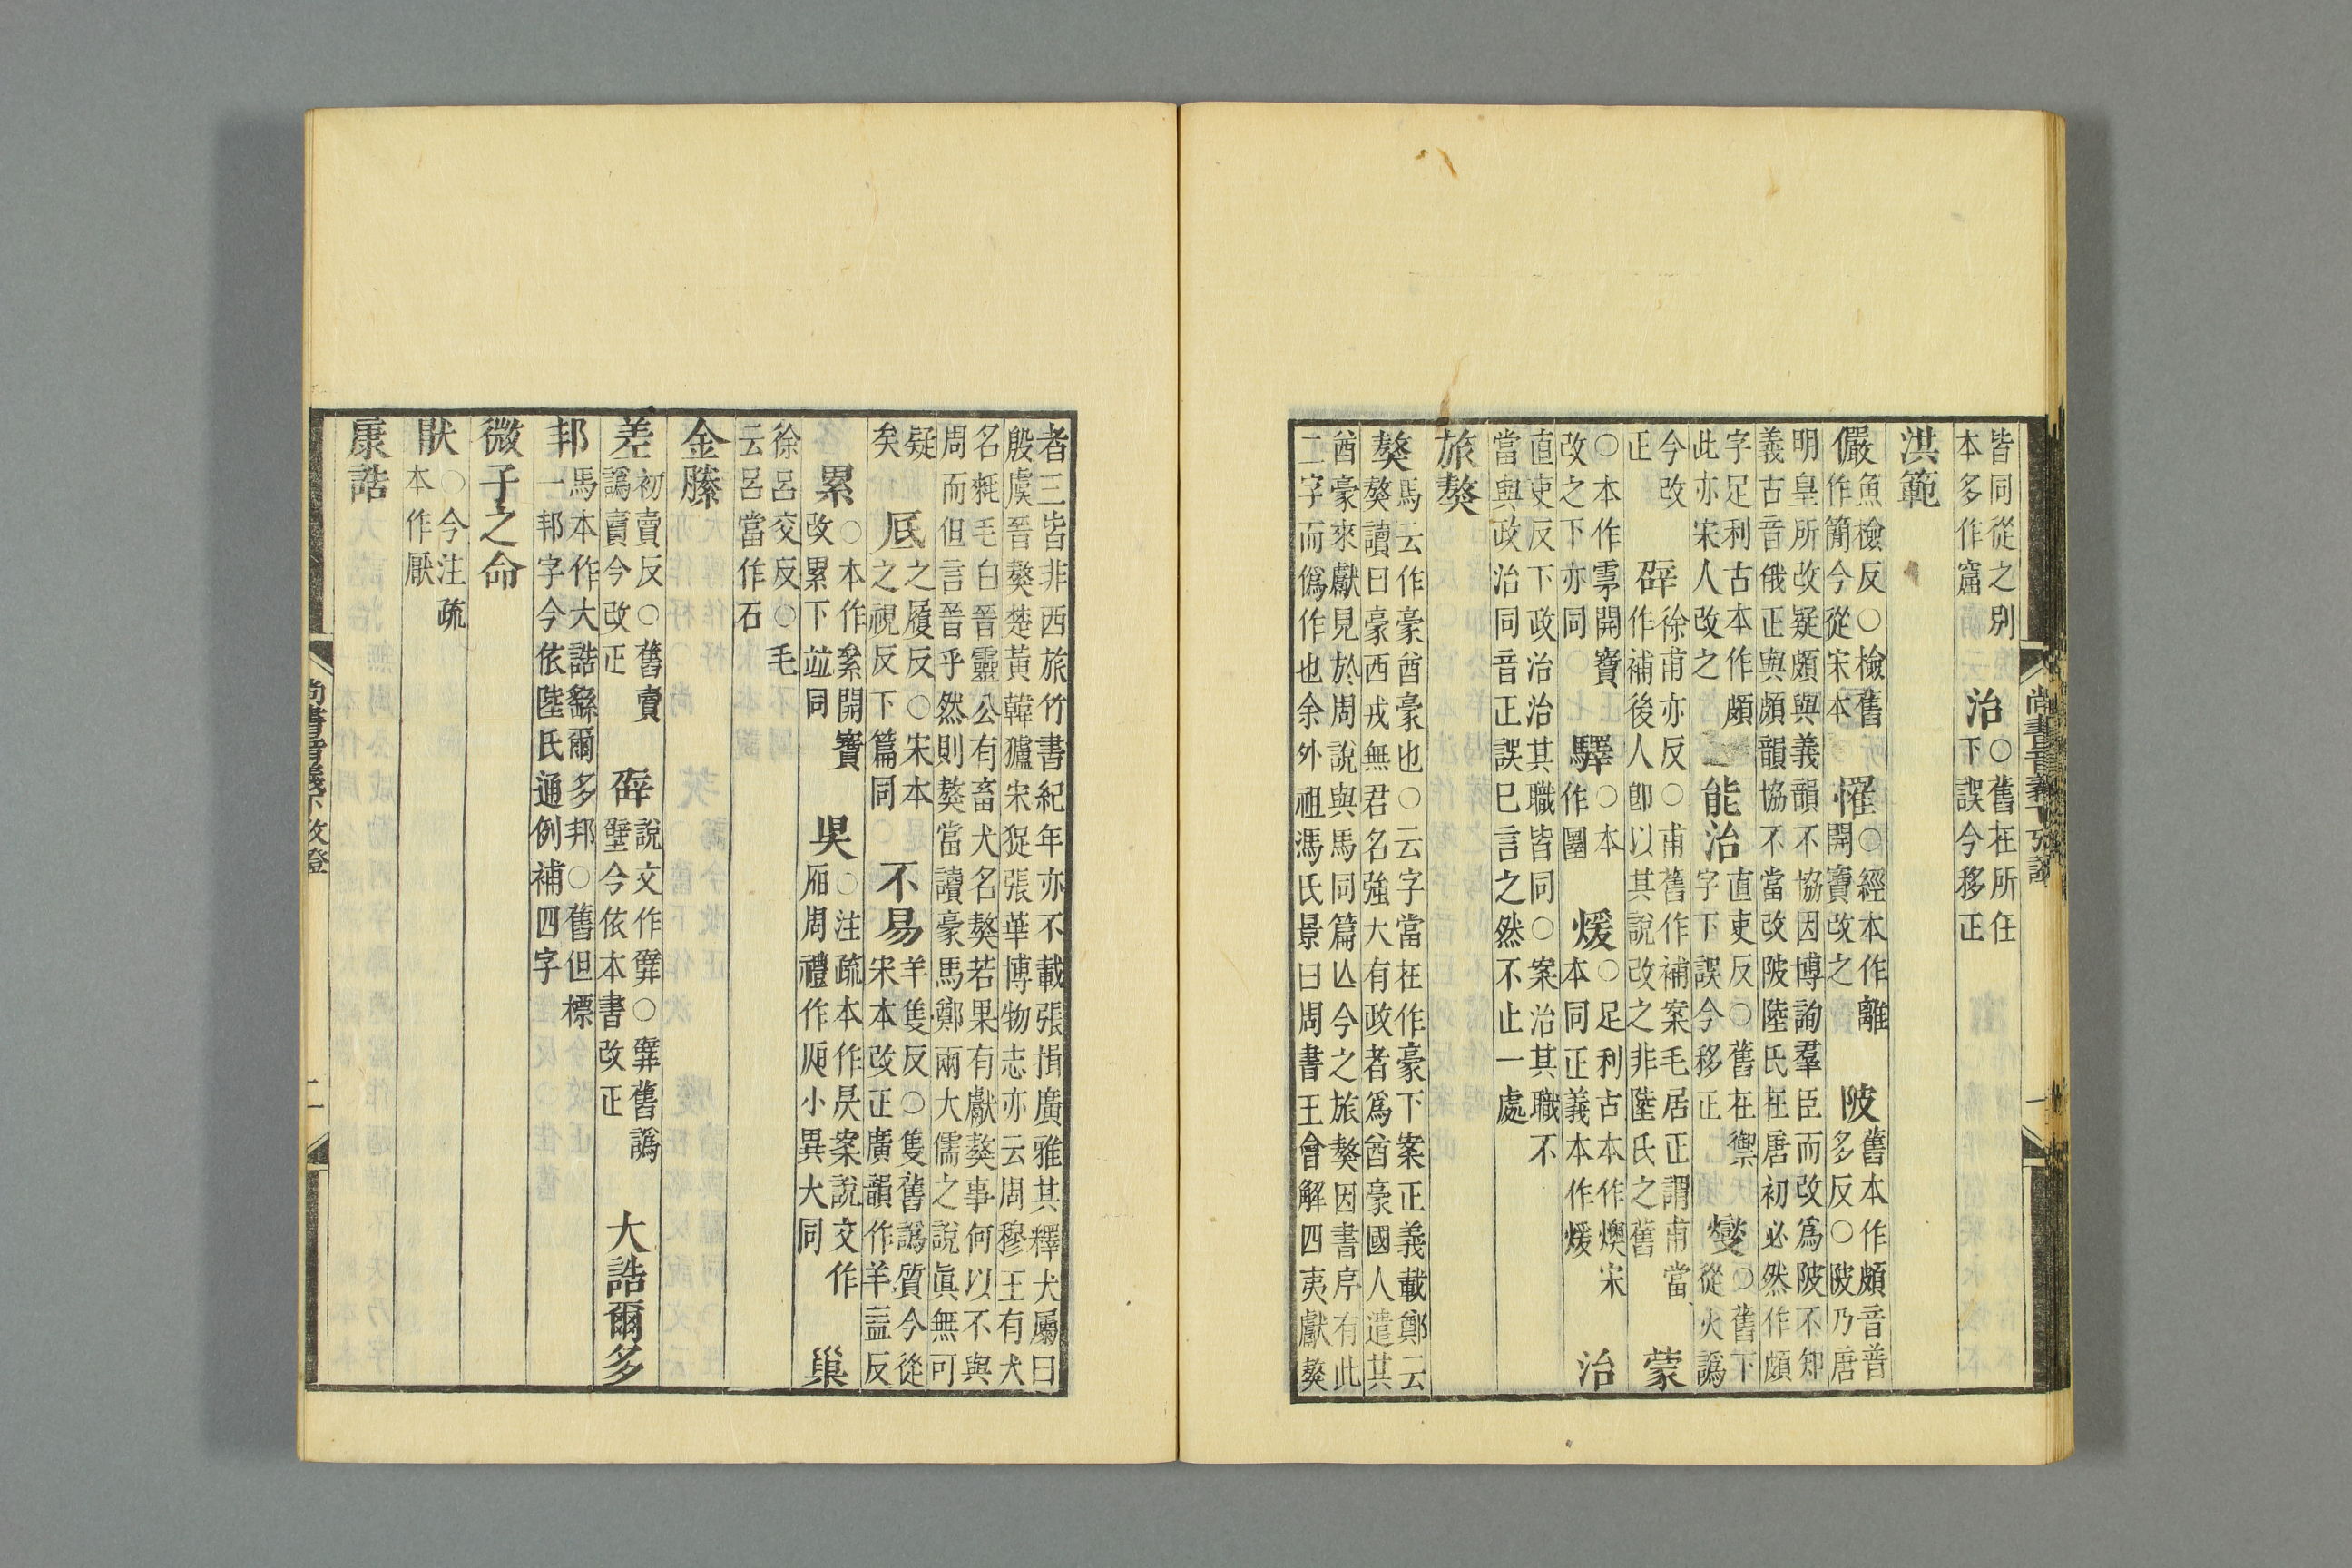 皆同從之別　治○舊在所任
本多作窟　下誤今移正
洪範
儼魚檢反○檢舊作簡今從宋本　懼○經本作離開寶改之　陂舊本作頗音普多反○陂乃唐
明皇所改疑頗與義韻不協因博詢羣臣而改爲陂不知
義古音俄正與頗韻協不當改陂陸氏在唐初必然作頗
字足利古本作頗
此亦宋人改之　能治直吏反○舊在禦字下誤今移正　燮○舊下從火譌
今改正　辟徐甫亦反○甫舊作補案毛居正謂甫當作補後人卽以其說改之非陸氏之舊　蒙
○本作雺開寶改之下亦同　驛○本作圛　煗○足利古本作燠宋本同正義本作煖　治
直吏反下政治治其職皆同○案治其職不
當與政治同音正誤已言之然不止一處
旅獒
獒馬云作豪酋豪也○云字當在作豪下案正義載鄭云
獒讀曰豪西戎無君名強大有政者爲酋豪國人遣其
酋豪來獻見於周說與馬同篇亾今之旅獒因書序有此
二字而僞作也余外祖馮氏景曰周書王會解四夷獻獒
尚書音義下攷證
一
者三皆非西旅竹書紀年亦不載張揖廣雅其釋犬屬曰
殷虞晉獒楚黃韓獹宋猣張華博物志亦云周穆王有犬
名㲠毛白晉靈公有畜犬名獒若果有獻獒事何以不與
周而但言晉乎然則獒當讀豪馬鄭兩大儒之說眞無可
疑矣　厎之履反○宋本之視反下篇同　不易羊隻反○隻舊譌質今從宋本改正廣韻作羊益反
累○本作絫開寶改累下竝同　昃○注疏本作昗案說文作𣅦周禮作𣅔小異大同　巢
徐呂交反○毛
云呂當作石
金縢
差初賣反○舊賣譌賫今改正　辟說文作𨐨○𨐨舊譌壁今依本書改正　大誥爾多
邦馬本作大誥繇爾多邦○舊但標
一邦字今依陸氏通例補四字
微子之命
猒○今注疏
本作厭
康誥
尚書音義下攷證
二